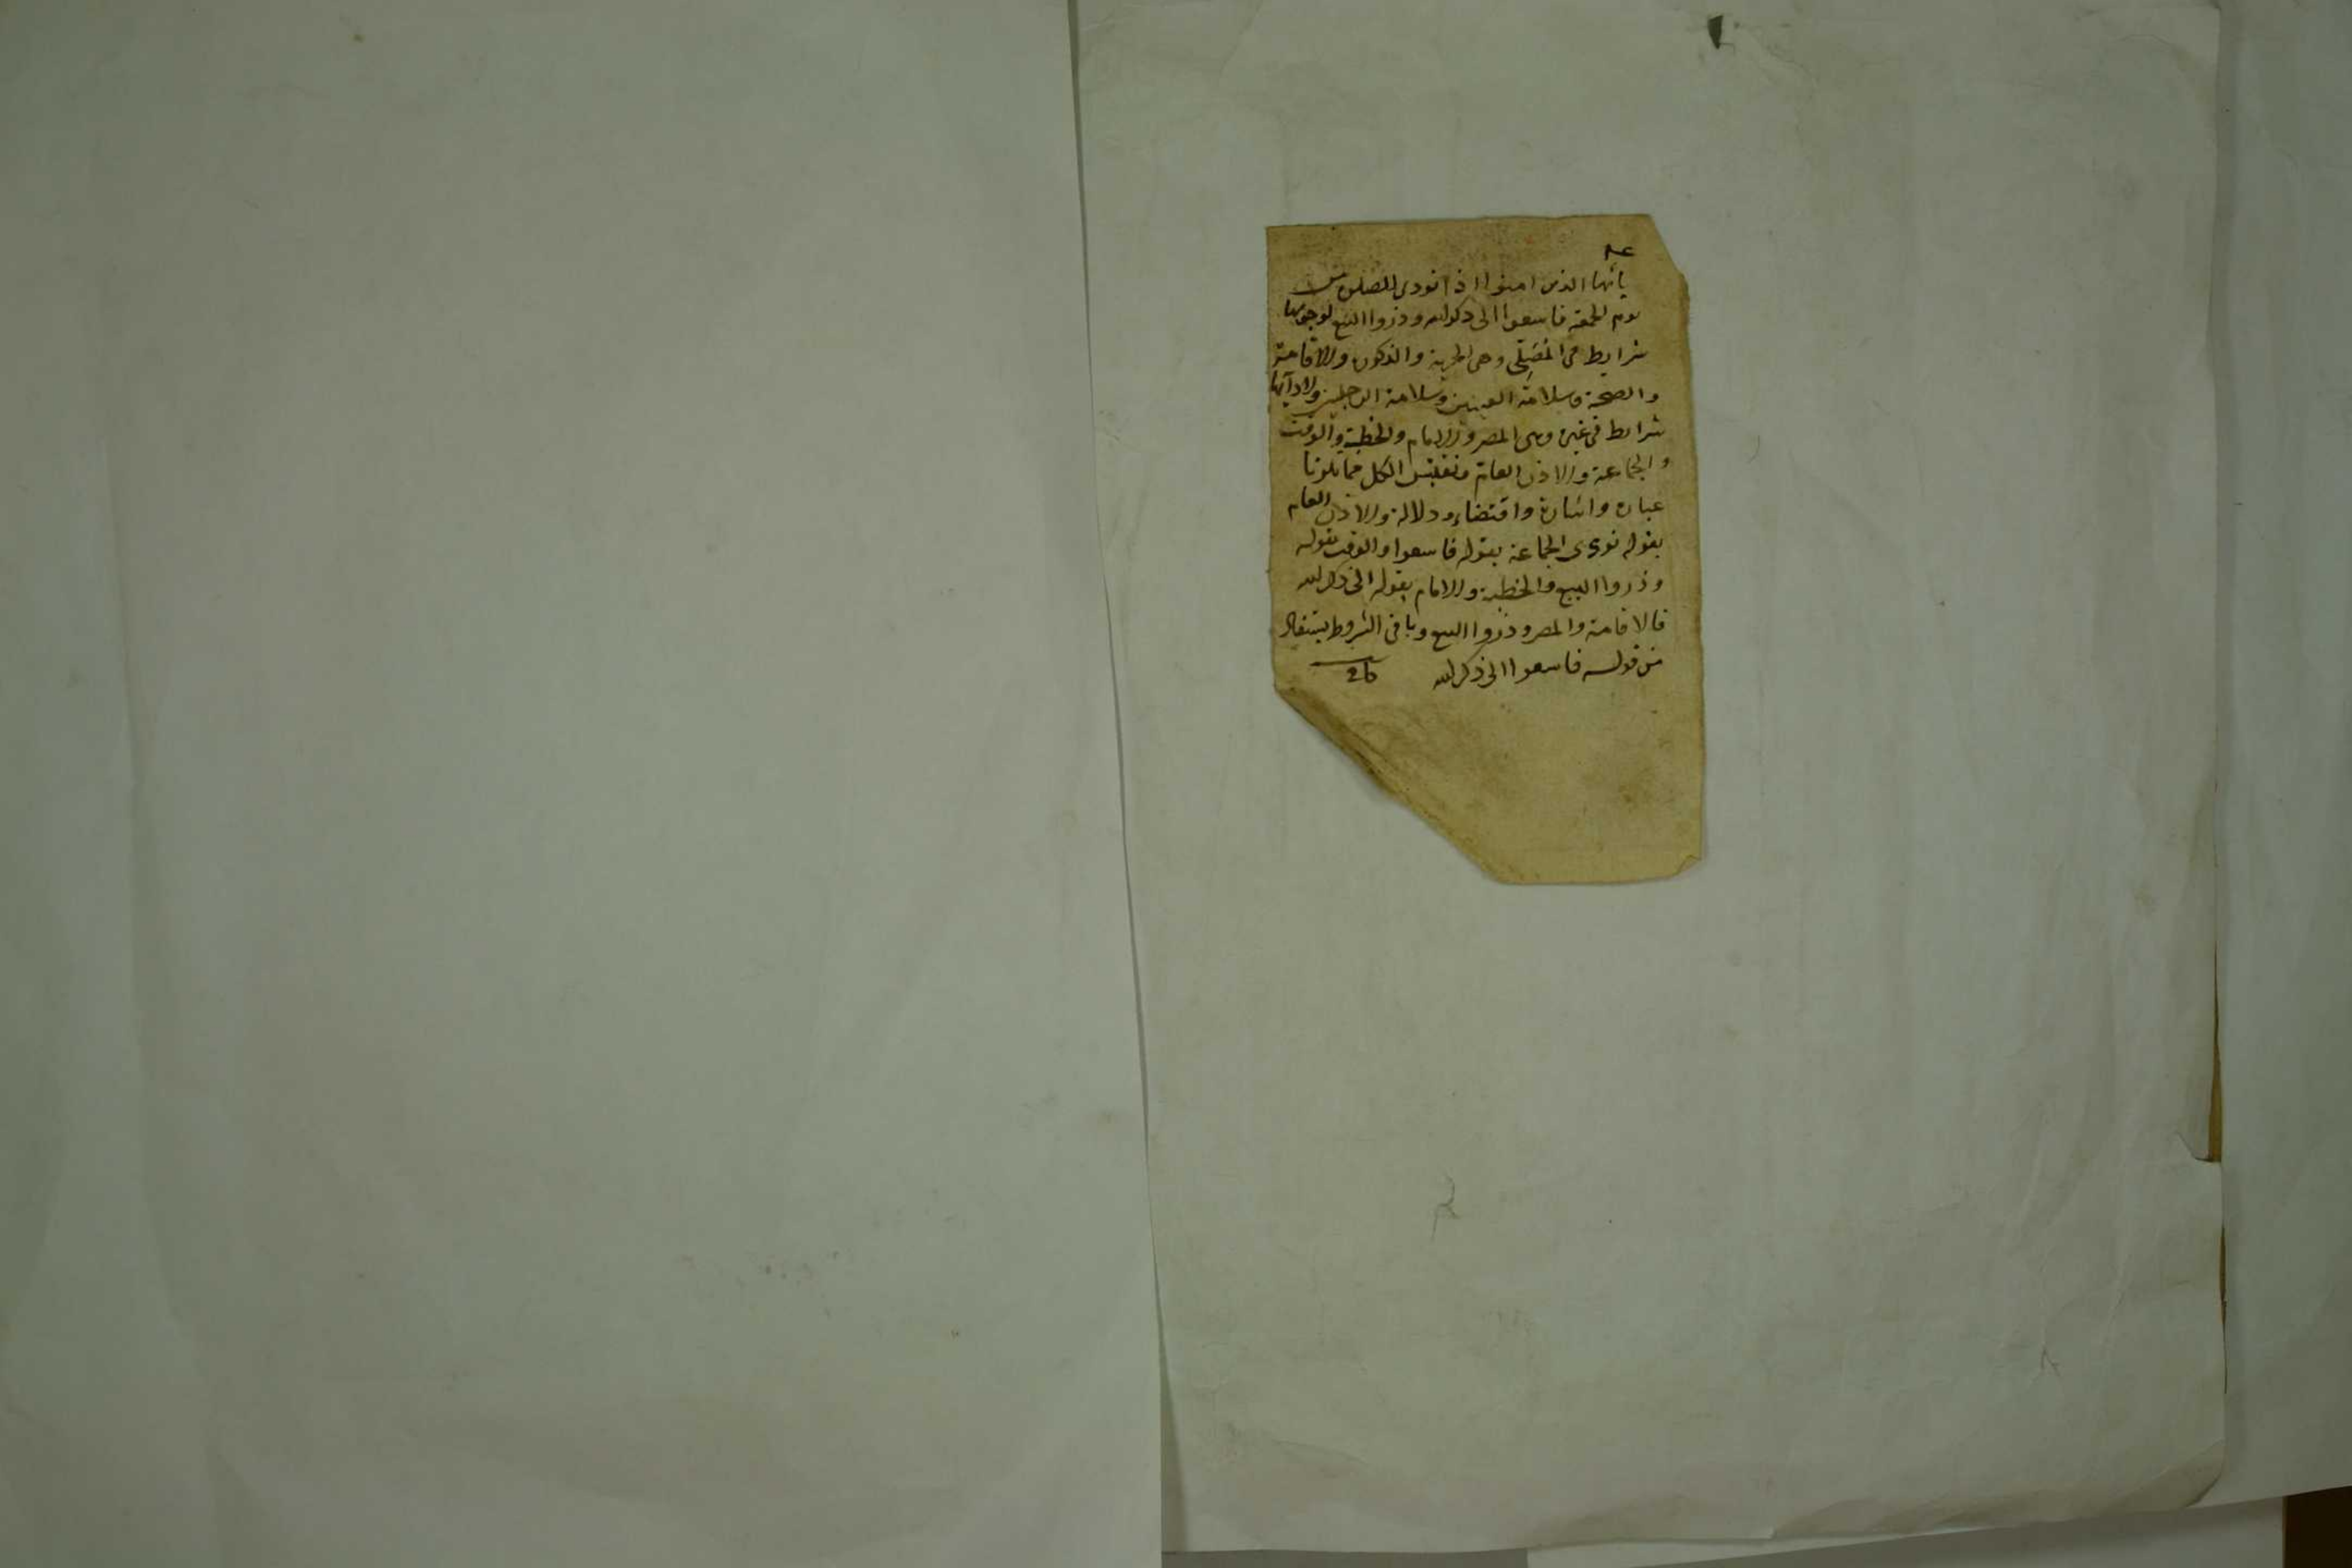 يا أيها الذين امنوا اذا نودى للصلوة من
يوم الجمعة فاسعوا الى ذكر الله وذروا البيع لوجوبها
شرايط فى المصلى وهى الحرية والذكورة والاقامة
والصحة وسلامة العينين وسلامة الرجلين ولادآئها
شرايط فى غيره وهى المصر والامام والخطبة والوقت
والجماعة والاذن العام ونقتبس الكل مما تلونا
عبارة واشارة واقتضاء ودلالة والاذن العام
بقوله نودى الجماعة بقوله فاسعوا والوقت بقوله
وذروا البيع والخطبة والامام بقوله الى ذكر الله
فالاقامة والمصر وذروا البيع وباقى الشروط يستفاد
من قوله فاسعوا الى ذكر الله